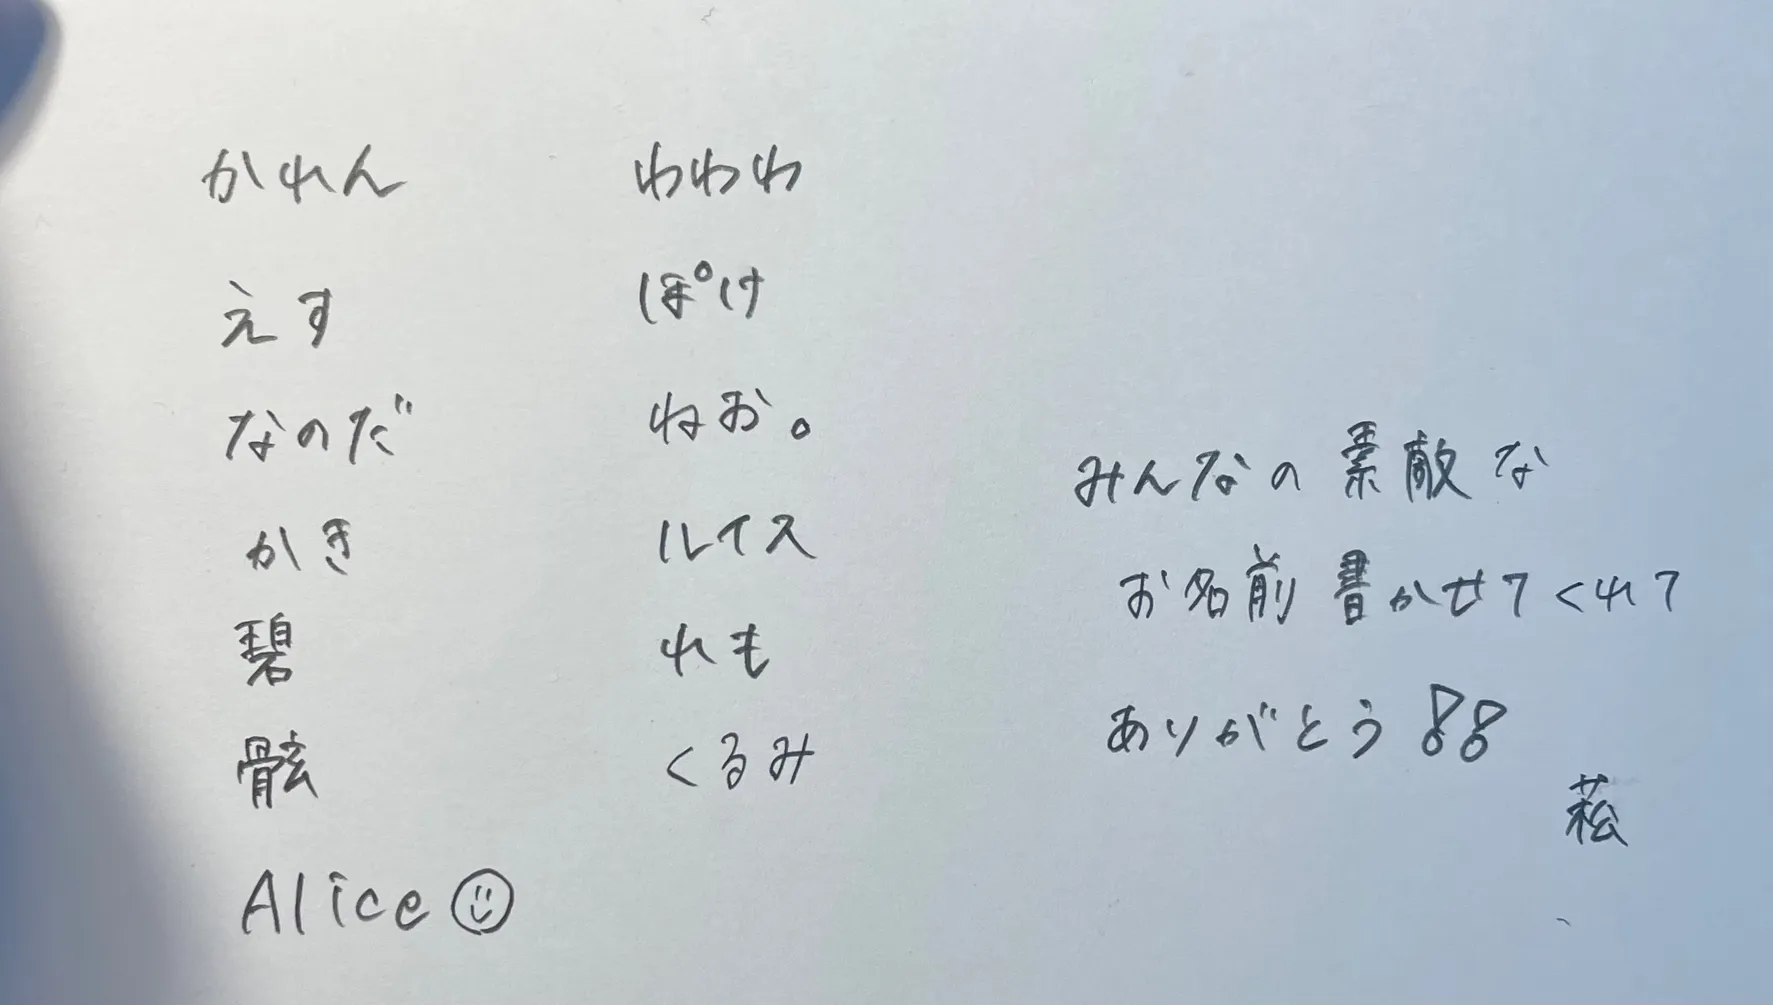 かれん
えす
なのだ
かき
碧
骸
Alice☺
わわわ
ぽけ
ねお。
ルイス
れも
くるみ
みんなの素敵な
お名前書かせてくれて
ありがとう!!
菘